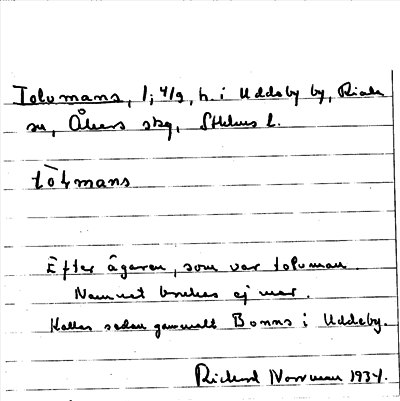 Tolvmans, 1; 4/9, h. i Uddeby by, Riala
sn, Åkers skg, Sthlms l.
tòḷmans
Efter ägaren, som var tolvman.
Namnet brukas ej mer.
Kallas sedan gammalt Bonns i Uddeby.
Rickard 1934.